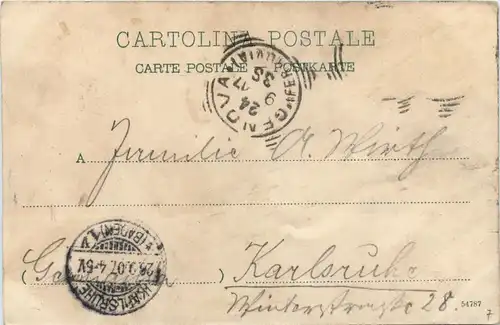 CARTOLINA POSTALE
CARTE POSTALE POSTKARTE
GENOVA
24 9 17
3S
A Familie A. Wirth
KARLSRUHE (BADEN) 1.V
26.9.07.4-5V.
Karlsruhe
Winterstrasse 28.
54787
7